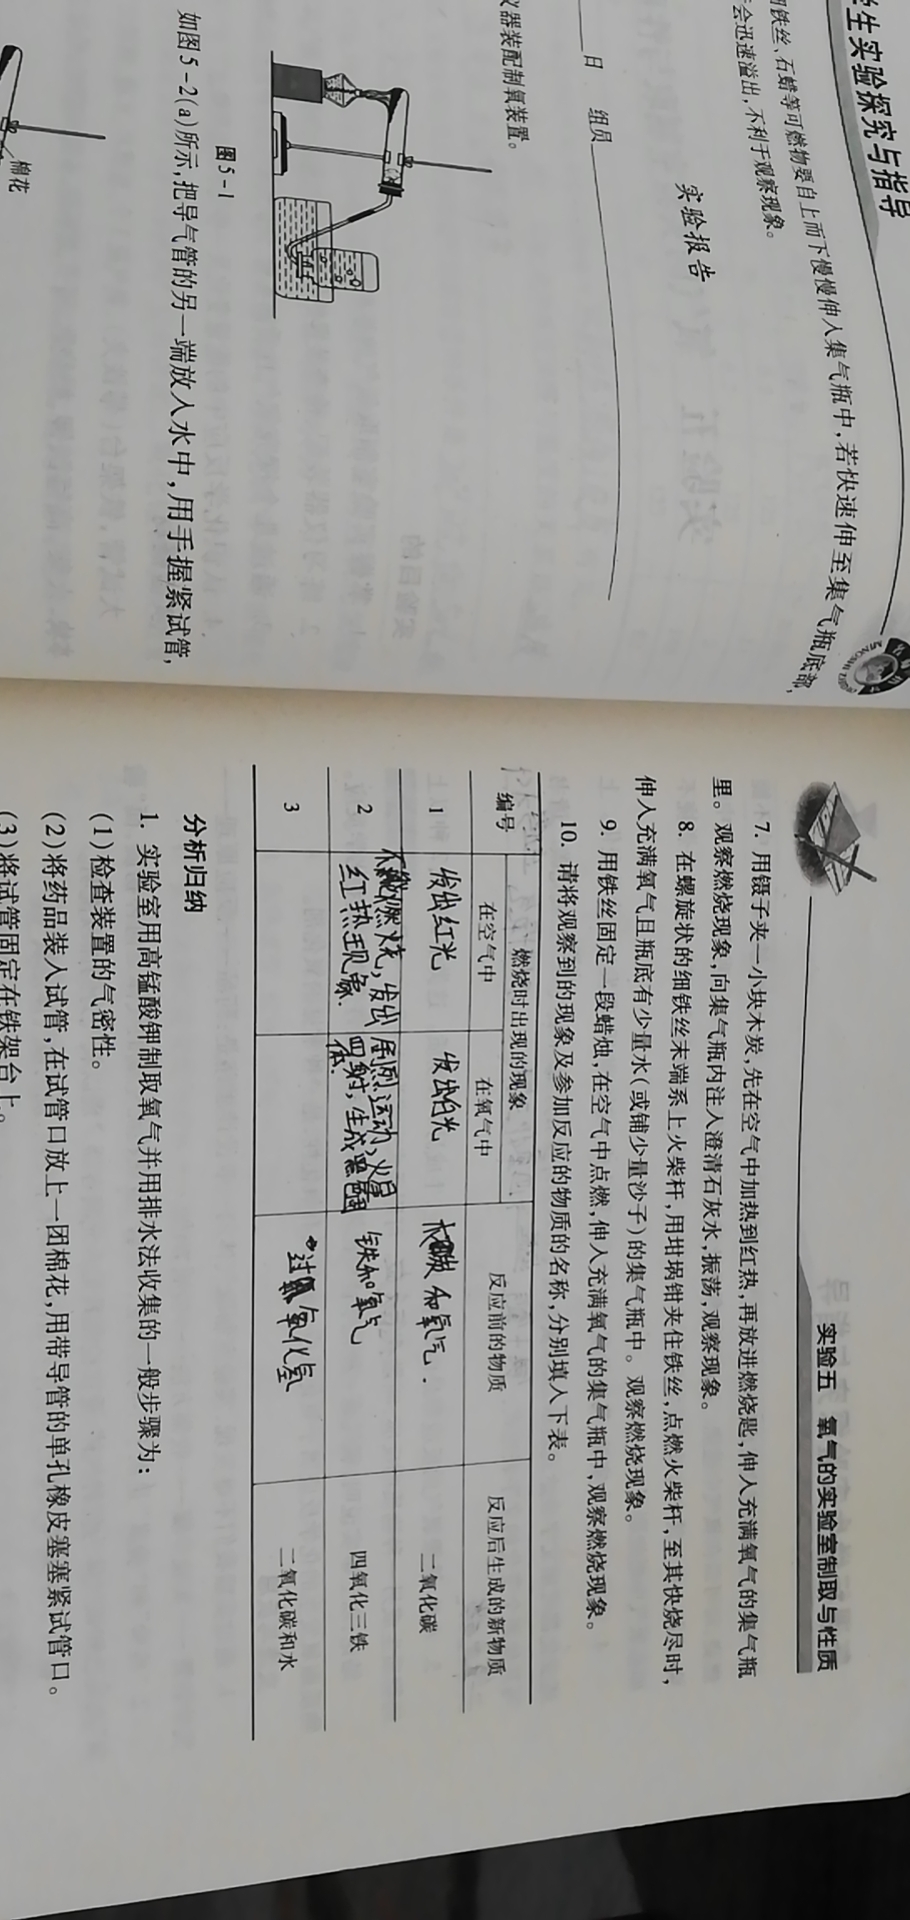 学生实验探究与指导
铁丝、石蜡等可燃物要自上而下慢慢伸入集气瓶中,若快速伸至集气瓶底部,
会迅速溢出,不利于观察现象。
实验报告
日 组员
仪器装配制氧装置。
图5-1
如图5-2(a)所示,把导气管的另一端放入水中,用手握紧试管,
棉花
实验五 氧气的实验室制取与性质
7. 用镊子夹一小块木炭,先在空气中加热到红热,再放进燃烧匙,伸入充满氧气的集气瓶
里。观察燃烧现象,向集气瓶内注入澄清石灰水,振荡,观察现象。
8. 在螺旋状的细铁丝末端系上火柴杆,用坩埚钳夹住铁丝,点燃火柴杆,至其快烧尽时,
伸入充满氧气且瓶底有少量水(或铺少量沙子)的集气瓶中。观察燃烧现象。
9. 用铁丝固定一段蜡烛,在空气中点燃,伸入充满氧气的集气瓶中,观察燃烧现象。
10. 请将观察到的现象及参加反应的物质的名称,分别填入下表。
编号 燃烧时出现的现象 反应前的物质 反应后生成的新物质
在空气中 在氧气中
1 发出红光 发出白光 碳和氧气. 二氧化碳
2 燃烧,发出 剧烈运动,火星 铁和氧气 四氧化三铁
红热现象. 四射,生成黑固
体.
3 过氧化氢 二氧化碳和水
分析归纳
1. 实验室用高锰酸钾制取氧气并用排水法收集的一般步骤为:
(1)检查装置的气密性。
(2)将药品装入试管,在试管口放上一团棉花,用带导管的单孔橡皮塞塞紧试管口。
(3)将试管固定在铁架台上。